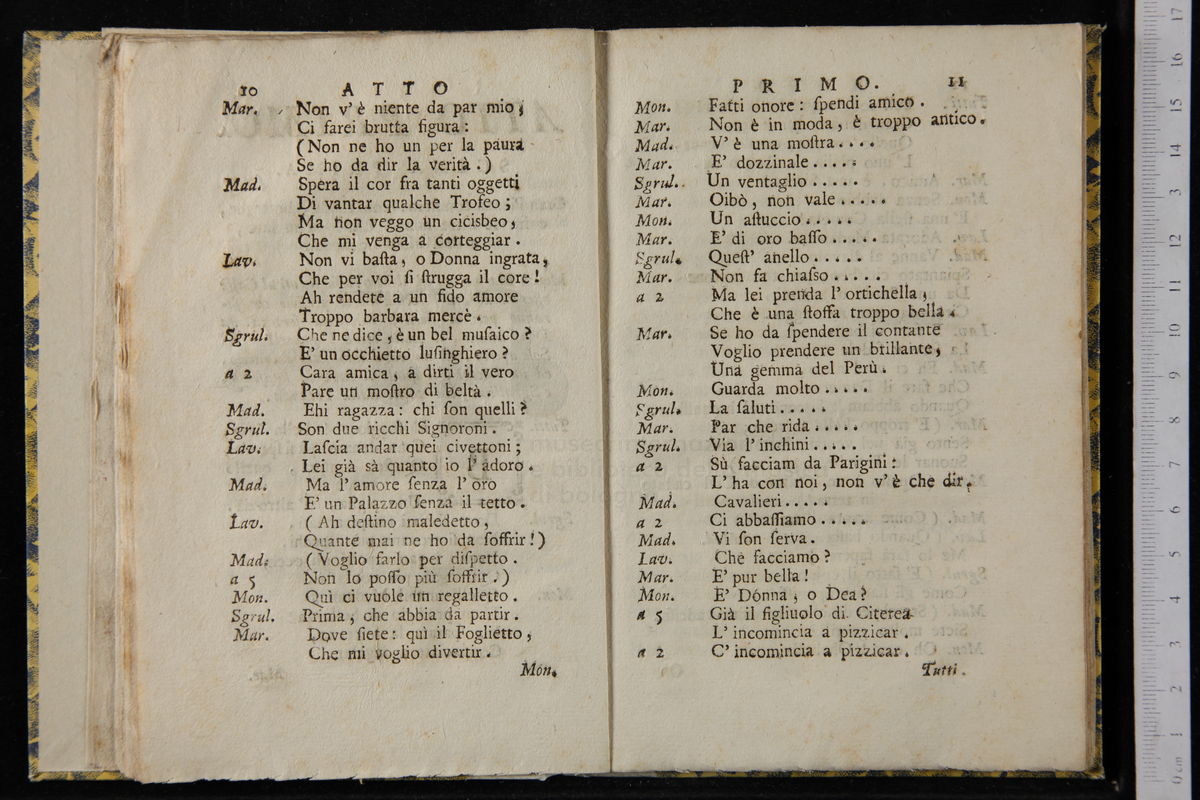 10 ATTO
Mar. Non v' è niente da par mio;
Ci farei brutta figura:
(Non ne ho un per la paura
Se ho da dir la verità.)
Mad. Spera il cor fra tanti oggetti
Di vantar qualche Trofeo;
Ma non veggo un cicisbeo,
Che mi venga a corteggiar.
Lav. Non vi baſta, o Donna ingrata,
Che per voi ſi ſtrugga il core!
Ah rendete a un fido amore
Troppo barbara mercè.
Sgrul. Che ne dice, è un bel muſaico?
E' un occhietto luſinghiero?
a 2 Cara amica, a dirti il vero
Pare un moſtro di beltà.
Mad. Ehi ragazza: chi ſon quelli?
Sgrul. Son due ricchi Signoroni.
Lav. Laſcia andar quei civettoni;
Lei già sà quanto io l' adoro.
Mad. Ma l' amore ſenza l' oro
E' un Palazzo ſenza il tetto.
Lav. (Ah deſtino maledetto,
Quante mai ne ho da ſoffrir!)
Mad. (Voglio farlo per diſpetto.
a 5 Non lo poſſo più ſoffrir.)
Mon. Quì ci vuole un regalletto.
Sgrul. Prima, che abbia da partir.
Mar. Dove ſiete: quì il Foglietto,
Che mi voglio divertir.
Mon.
PRIMO. 11
Mon. Fatti onore: ſpendi amico.
Mar. Non è in moda, è troppo antico.
Mad. V' è una moſtra....
Mar. E' dozzinale....
Sgrul. Un ventaglio.....
Mar. Oibò, non vale.....
Mon. Un aſtuccio.....
Mar. E' di oro baſſo.....
Sgrul. Queſt' anello.....
Mar. Non fa chiaſso.....
a 2 Ma lei prenda l' ortichella,
Che è una ſtoffa troppo bella.
Mar. Se ho da ſpendere il contante
Voglio prendere un brillante,
Una gemma del Perù.
Mon. Guarda molto.....
Sgrul. La ſaluti.....
Mar. Par che rida.....
Sgrul. Via l' inchini.....
a 2 Sù facciam da Parigini:
L' ha con noi, non v' è che dir.
Mad. Cavalieri.....
a 2 Ci abbaſſiamo.....
Mad. Vi ſon ſerva.
Lav. Che facciamo?
Mar. E' pur bella!
Mon. E' Donna, o Dea?
a 5 Già il figliuolo di Citerea
L' incomincia a pizzicar.
a 2 C' incomincia a pizzicar.
Tutti.